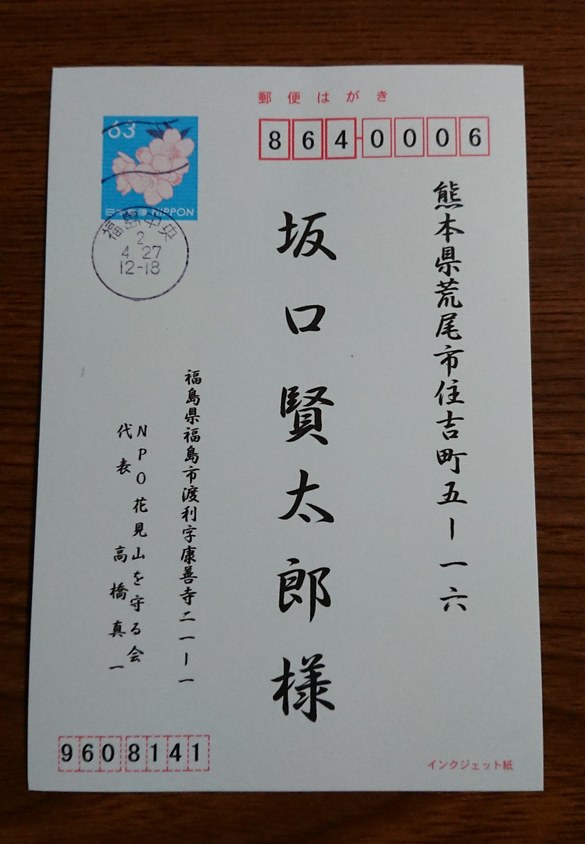 郵便はがき
864-0006
熊本県荒尾市住吉町五ー一六
坂口賢太郎様
63
日本郵便 NIPPON
福島中央
2
4 27
12-18
福島県福島市渡利字康善寺二一ー一
NPO花見山を守る会
代表 高橋真一
9608141
インクジェット紙